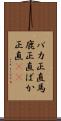 バカ正直馬
鹿正直ばか
正直